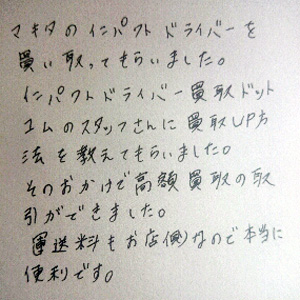 マキタのインパクトドライバーを
買い取ってもらいました。
インパクトドライバー買取ドット
コムのスタッフさんに買取UP方
法を教えてもらいました。
そのおかげで高額買取の取
引ができました。
運送料もお店側なので本当に
便利です。